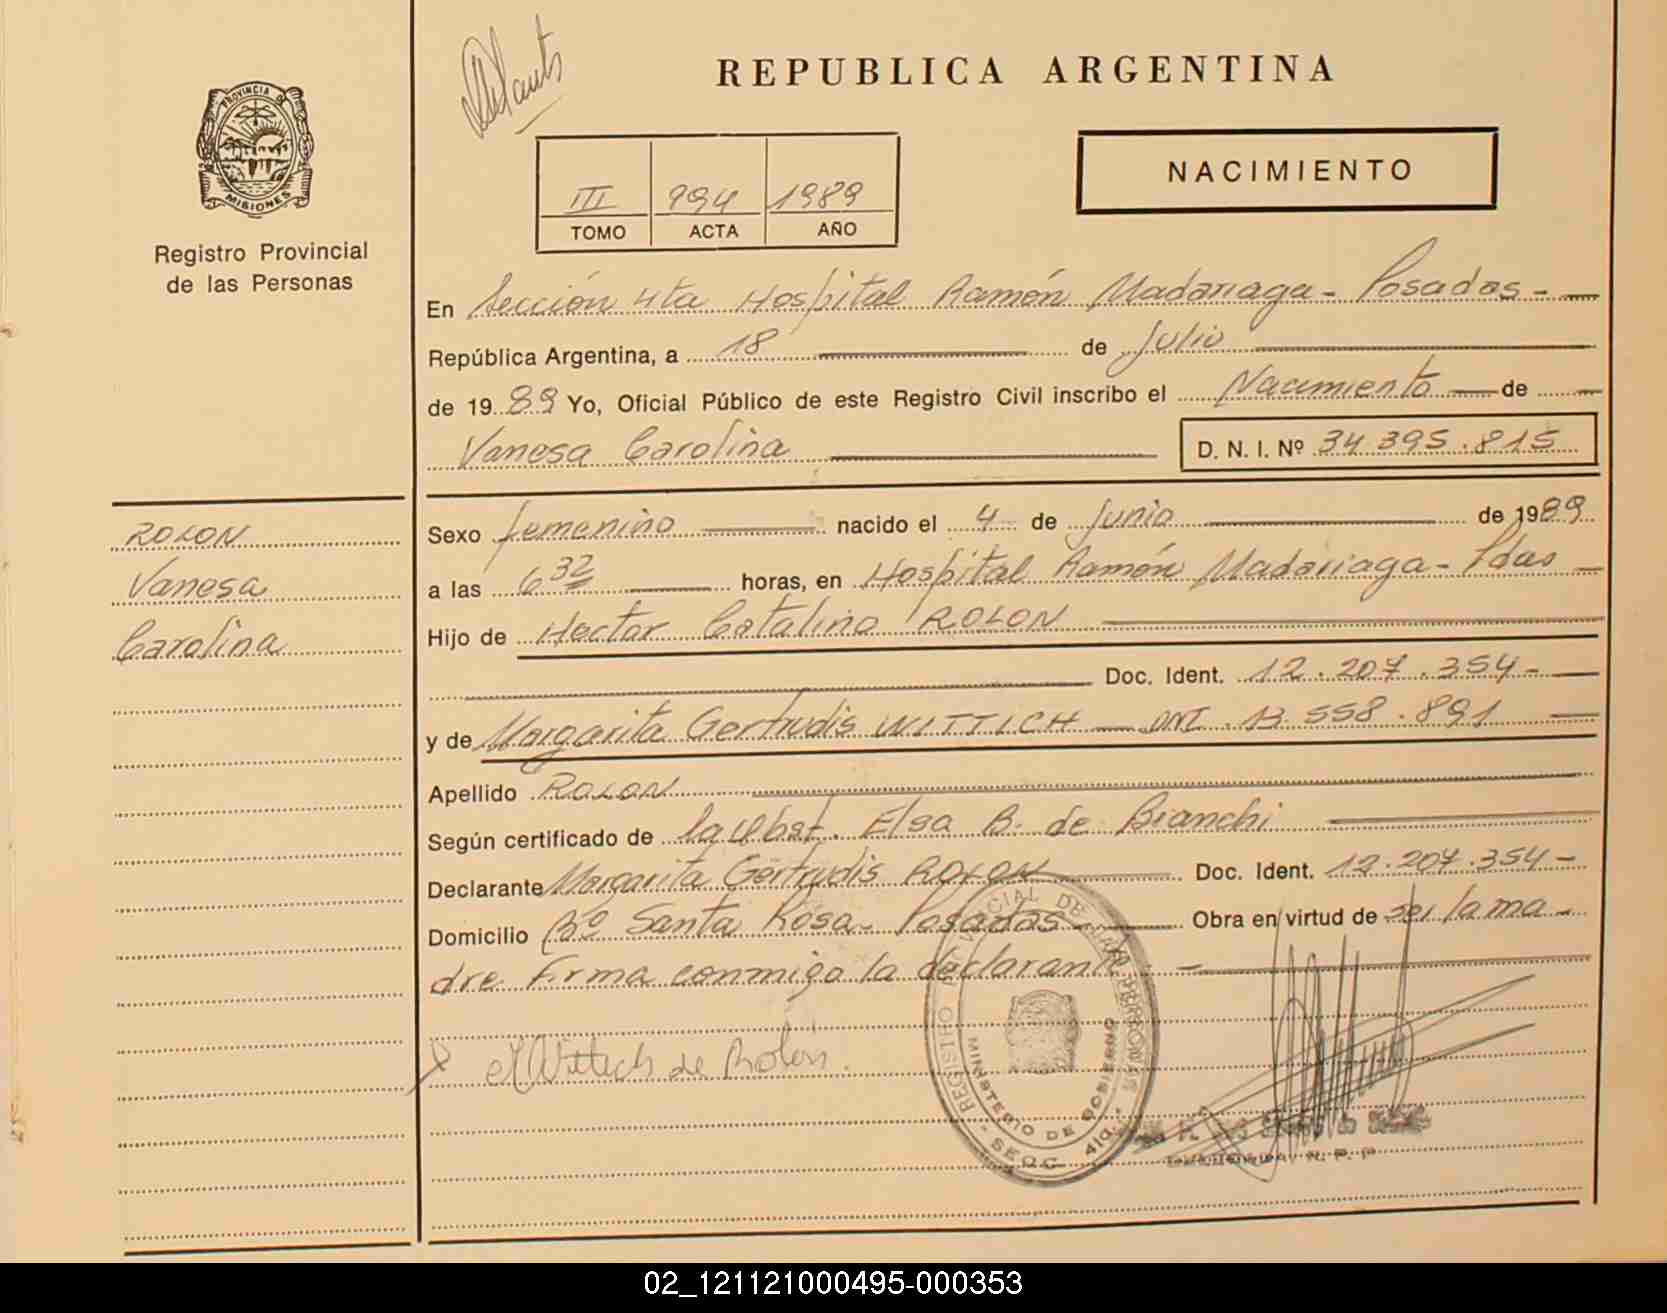 REPUBLICA ARGENTINA
PROVINCIA DE
MISIONES
Registro Provincial
de las Personas
III 994 1989
TOMO ACTA AÑO
NACIMIENTO
En Sección 4ta Hospital Ramón Madariaga - Posadas -
República Argentina, a 18 de Julio
de 1989 Yo, Oficial Público de este Registro Civil inscribo el Nacimiento de
Vanesa Carolina D. N. I. Nº 34 395.815
ROLON
Vanesa
Carolina
Sexo femenino nacido el 4 de Junio de 1989
a las 6 32 horas, en Hospital Ramón Madariaga - Pdas
Hijo de Hector Catalino ROLON
Doc. Ident. 12.207.354-
y de Margarita Gertrudis WITTICH - DNI. 13 558.891
Apellido ROLON
Según certificado de la Obst. Elsa B. de Bianchi
Declarante Margarita Gertrudis ROLON Doc. Ident. 12.207.354-
Domicilio Bº Santa Rosa - Posadas Obra en virtud de ser la ma-
dre. Firma conmigo la declarante.
Wittich de Rolon.
REGISTRO PROVINCIAL DE LAS PERSONAS
MINISTERIO DE GOBIERNO
- SECC. 4ta. -
02_121121000495-000353